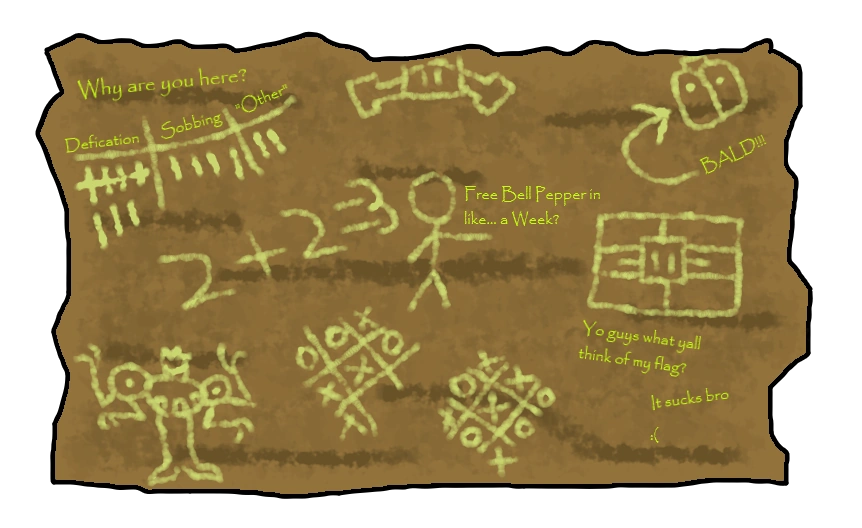 Why are you here?
Defication Sobbing "Other"
BALD!!!
Free Bell Pepper in
like... a Week?
2+2=3
Yo guys what yall
think of my flag?
It sucks bro
:(